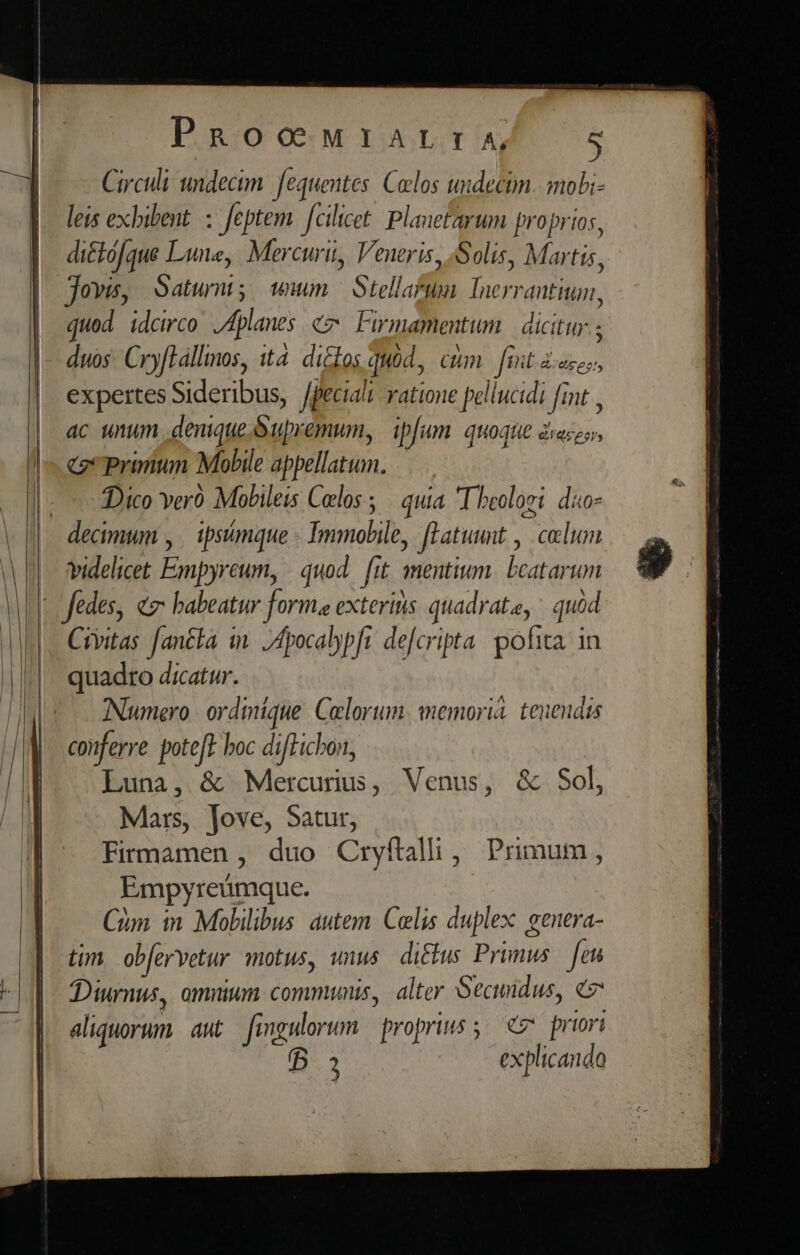 PROŒMIALIA, 5
Circuli undecim ſequentes Cœlos undecim mobi-
leis exhibent : ſeptem ſcilicet Planetarum proprios,
dictóſque Lunæ, Mercurii, Veneris, Solis, Martis,
Jovis, Saturni; unum Stellarum Inerrantium,
quod idcirco Aplanes & Firmamentum dicitur;
duos Cryſtallinos, ità dictos quòd, cùm ſint
expertes Sideribus, ſpeciali ratione pellucidi ſint,
ac unum denique Supremum, ipſum quoque
& Primum Mobile appellatum.
Dico verò Mobileis Cœlos; quia Theologi duo-
decimum, ipsúmque Immobile, ſtatuunt, cœlum
videlicet Empyreum, quod ſit mentium beatarum
ſedes, & habeatur formæ exteriùs quadratæ, quòd
Civitas ſancta in Apocalypſi deſcripta poſita in
quadro dicatur.
Numero ordiníque Cœlorum memoriâ tenendis
conferre poteſt hoc diſtichon,
Luna, & Mercurius, Venus, & Sol,
Mars, Jove, Satur,
Firmamen, duo Cryſtalli, Primum,
Empyreúmque.
Cùm in Mobilibus autem Cœlis duplex genera-
tim obſervetur motus, unus dictus Primus ſeu
Diurnus, omnium communis, alter Secundus, &
aliquorum aut ſingulorum proprius; & priori
B 3 explicando